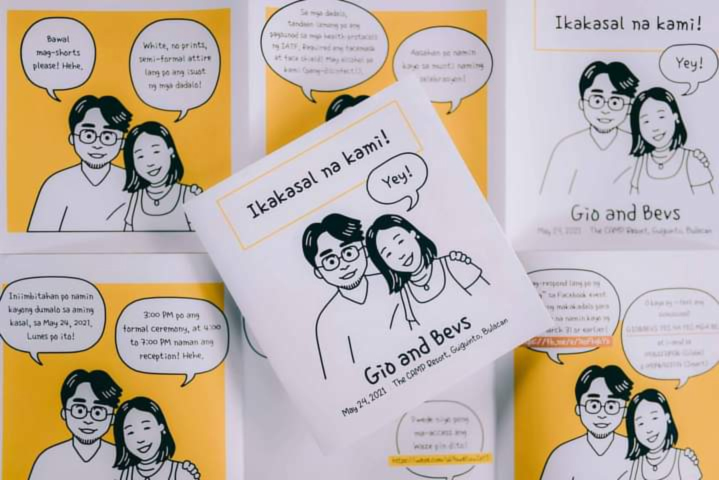 Bawal
mag-shorts
please! Hehe.
White, no prints,
semi-formal attire
lang po ang isuot
ng mga dadalo!
Sa mga dadalo,
tandaan lamang po ang
pagsunod sa mga health protocols
ng IATF. Required ang facemask
at face shield! May alcohol sa
kami (pang-disinfect!).
Aasahan po namin
kayo sa munti naming
selebrasyon!
Ikakasal na kami!
Yey!
Gio and Bevs
May 24, 2021 The CAMP Resort, Guiguinto, Bulacan
Ikakasal na kami!
Yey!
Gio and Bevs
May 24, 2021 The CAMP Resort, Guiguinto, Bulacan
Iniimbitahan po namin
kayong dumalo sa aming
kasal, sa May 24, 2021.
Lunes po ito!
3:00 PM po ang
formal ceremony, at 4:00
to 7:00 PM naman ang
reception! Hehe.
-respond lang po ng
sa Facebook event
ng makakadalo para
na namin kayo ng
March 31 or earlier!
O kaya ay i-text ang
at i-send sa
Pwede niyo pong
ma-access ang
Waze pin dito!